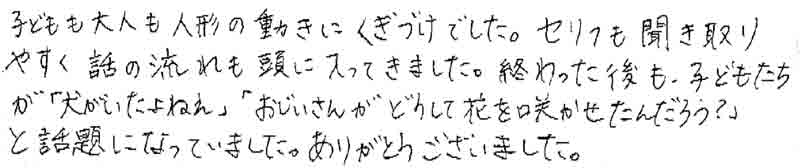 子どもも大人も人形の動きにくぎづけでした。セリフも聞き取り
やすく話の流れも頭に入ってきました。終わった後も、子どもたち
が「犬がいたよねえ」「おじいさんがどうして花を咲かせたんだろう？」
と話題になっていました。ありがとうございました。